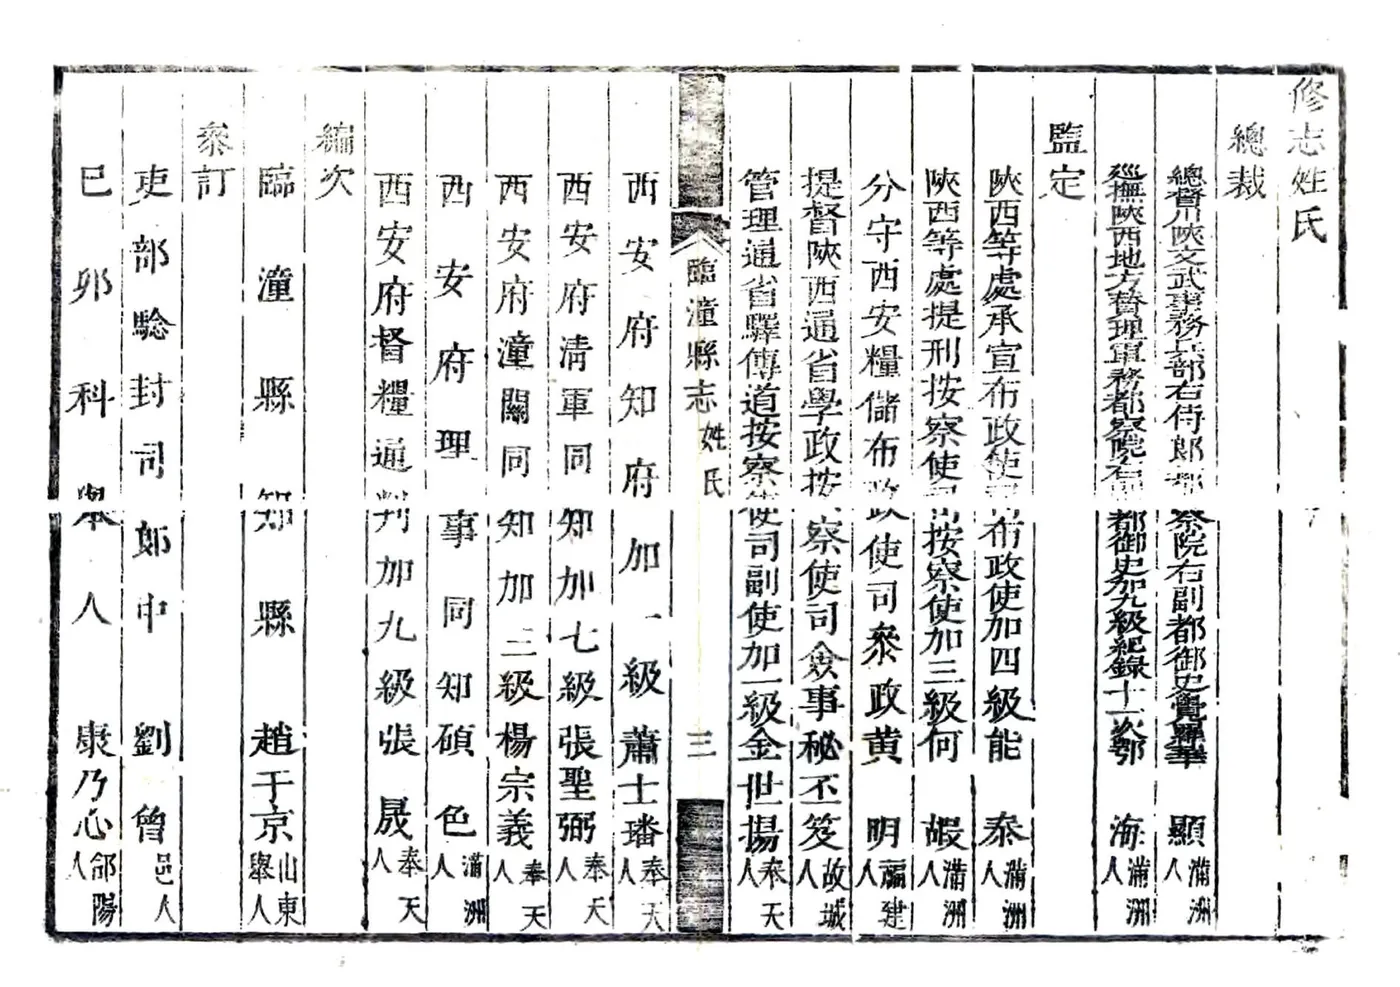 修志姓氏
總裁
總督川陝文武事務兵部右侍郎都察院右副都御史覺羅華 顯 滿洲人
廵撫陝西地方贊理軍務都察院右副都御史加九級紀錄十一次鄂 海 滿洲人
監定
陝西等處承宣布政使司布政使加四級能 泰 滿洲人
陝西等處提刑按察使司按察使加三級何 嘏 滿洲人
分守西安糧儲布政使司叅政黄 明 福建人
提督陝西通省學政按察使司僉事秘丕笈 故城人
管理通省驛傳道按察使司副使加一級金世揚 奉天人
臨潼縣志 姓氏 三
西安府知府加一級蕭士璠 奉天人
西安府清軍同知加七級張聖弼 奉天人
西安府潼關同知加三級楊宗義 奉天人
西安府理事同知碩 色 滿洲人
西安府督糧通判加九級張 晟 奉天人
編次
臨潼縣知縣趙于京 山東舉人
叅訂
吏部騐封司郎中劉 曾 邑人
巳卯科舉人康乃心 郃陽人